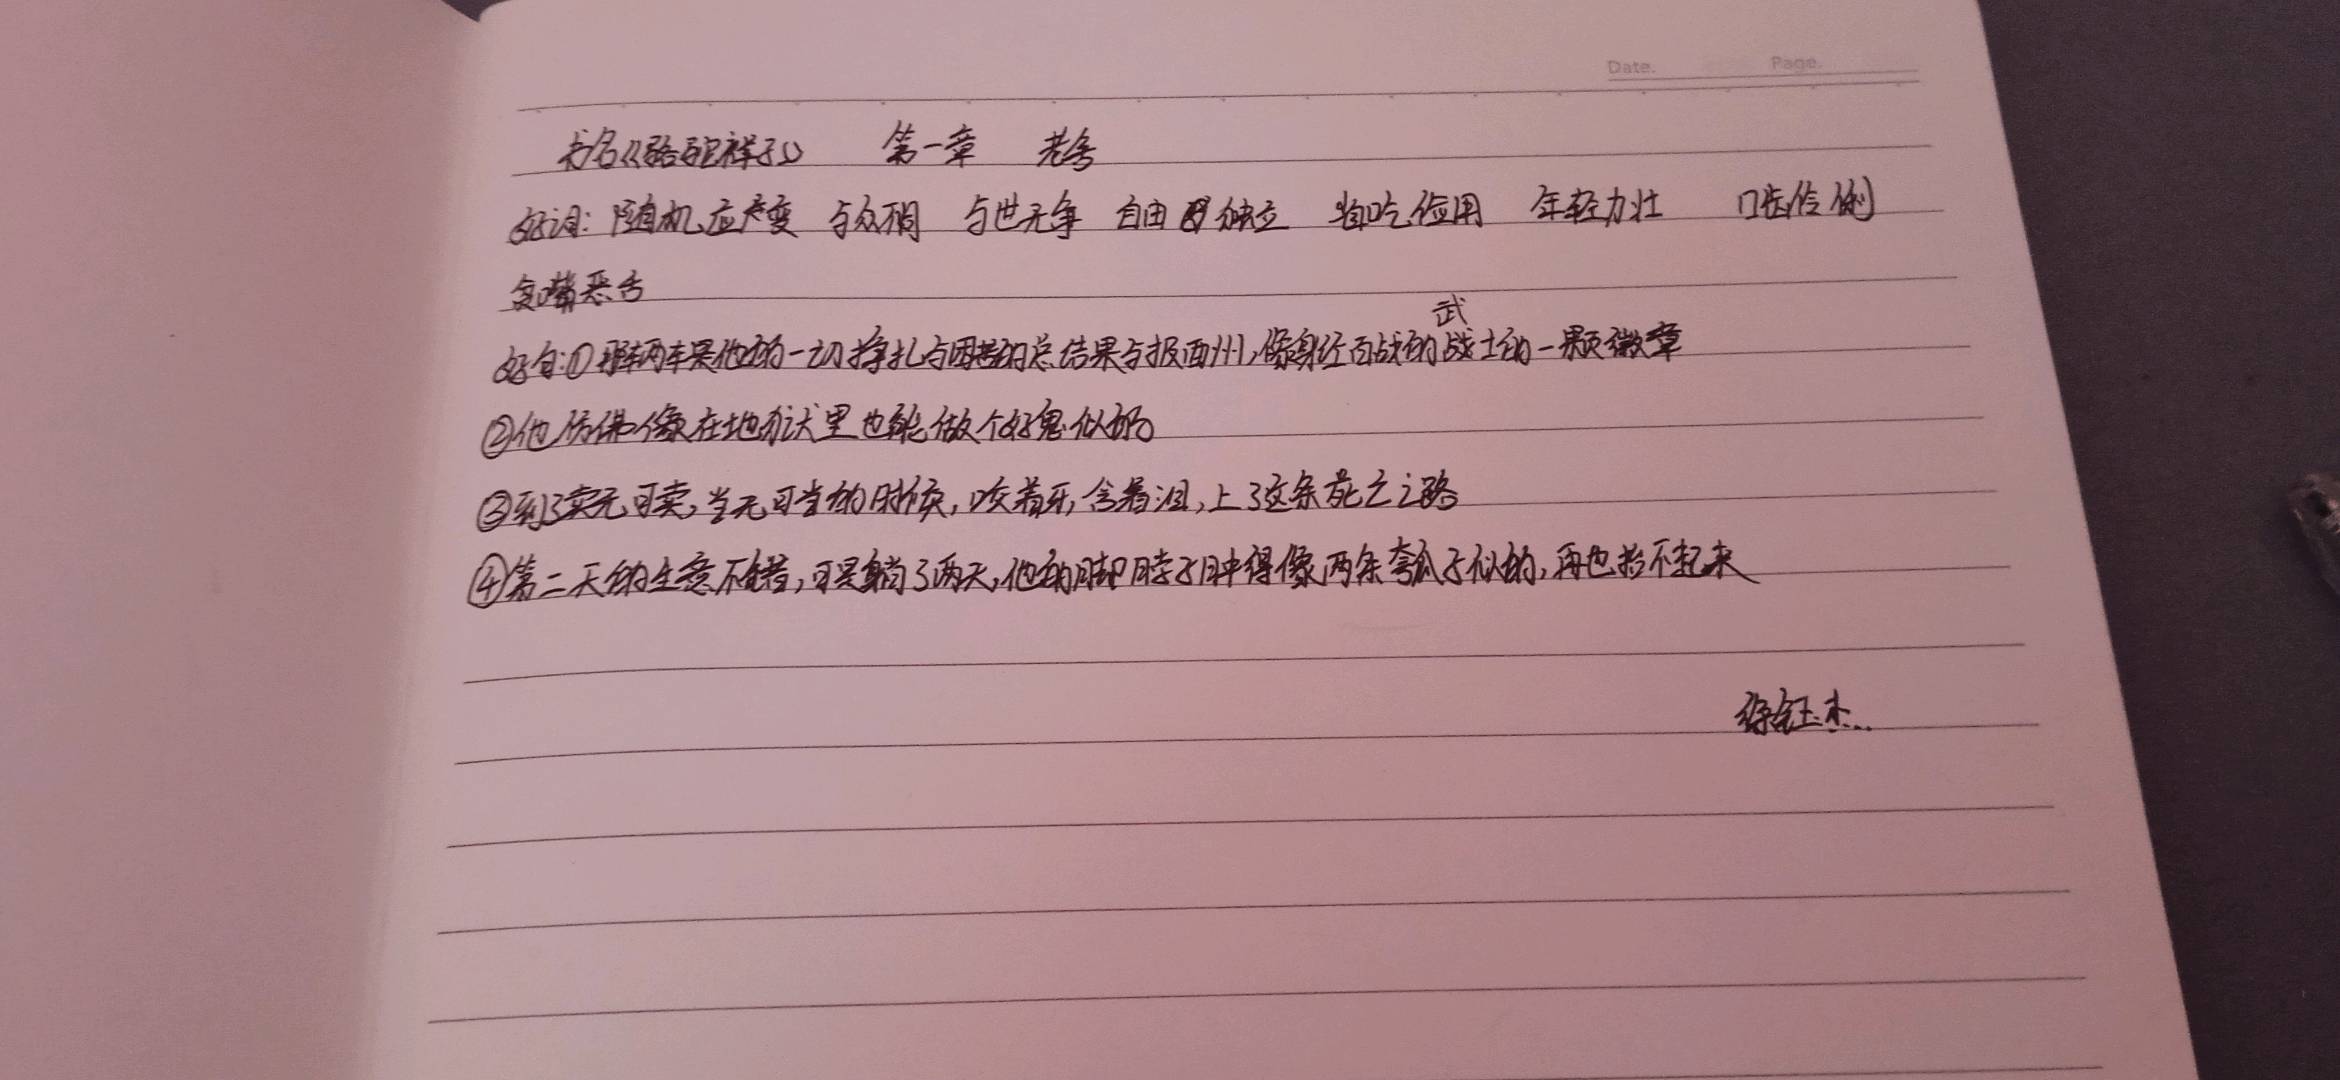 Date. Page.
书名《骆驼祥子》 第一章 老舍
好词：随机应变 与众不同 与世无争 自由独立 省吃俭用 年轻力壮 口齿伶俐
贫嘴恶舌
好句：①那辆车是他的一切挣扎与困苦的总结果与报酬，像身经百战的武士的一颗徽章
②他仿佛像在地狱里也能做个好鬼似的。
③到了卖无可卖，当无可当的时候，咬着牙，含着泪，上了这条死亡之路
④第二天的生意不错，可是躺了两天，他的脚脖子肿得像两条瓠瓜子似的，再也抬不起来
徐钰杰...